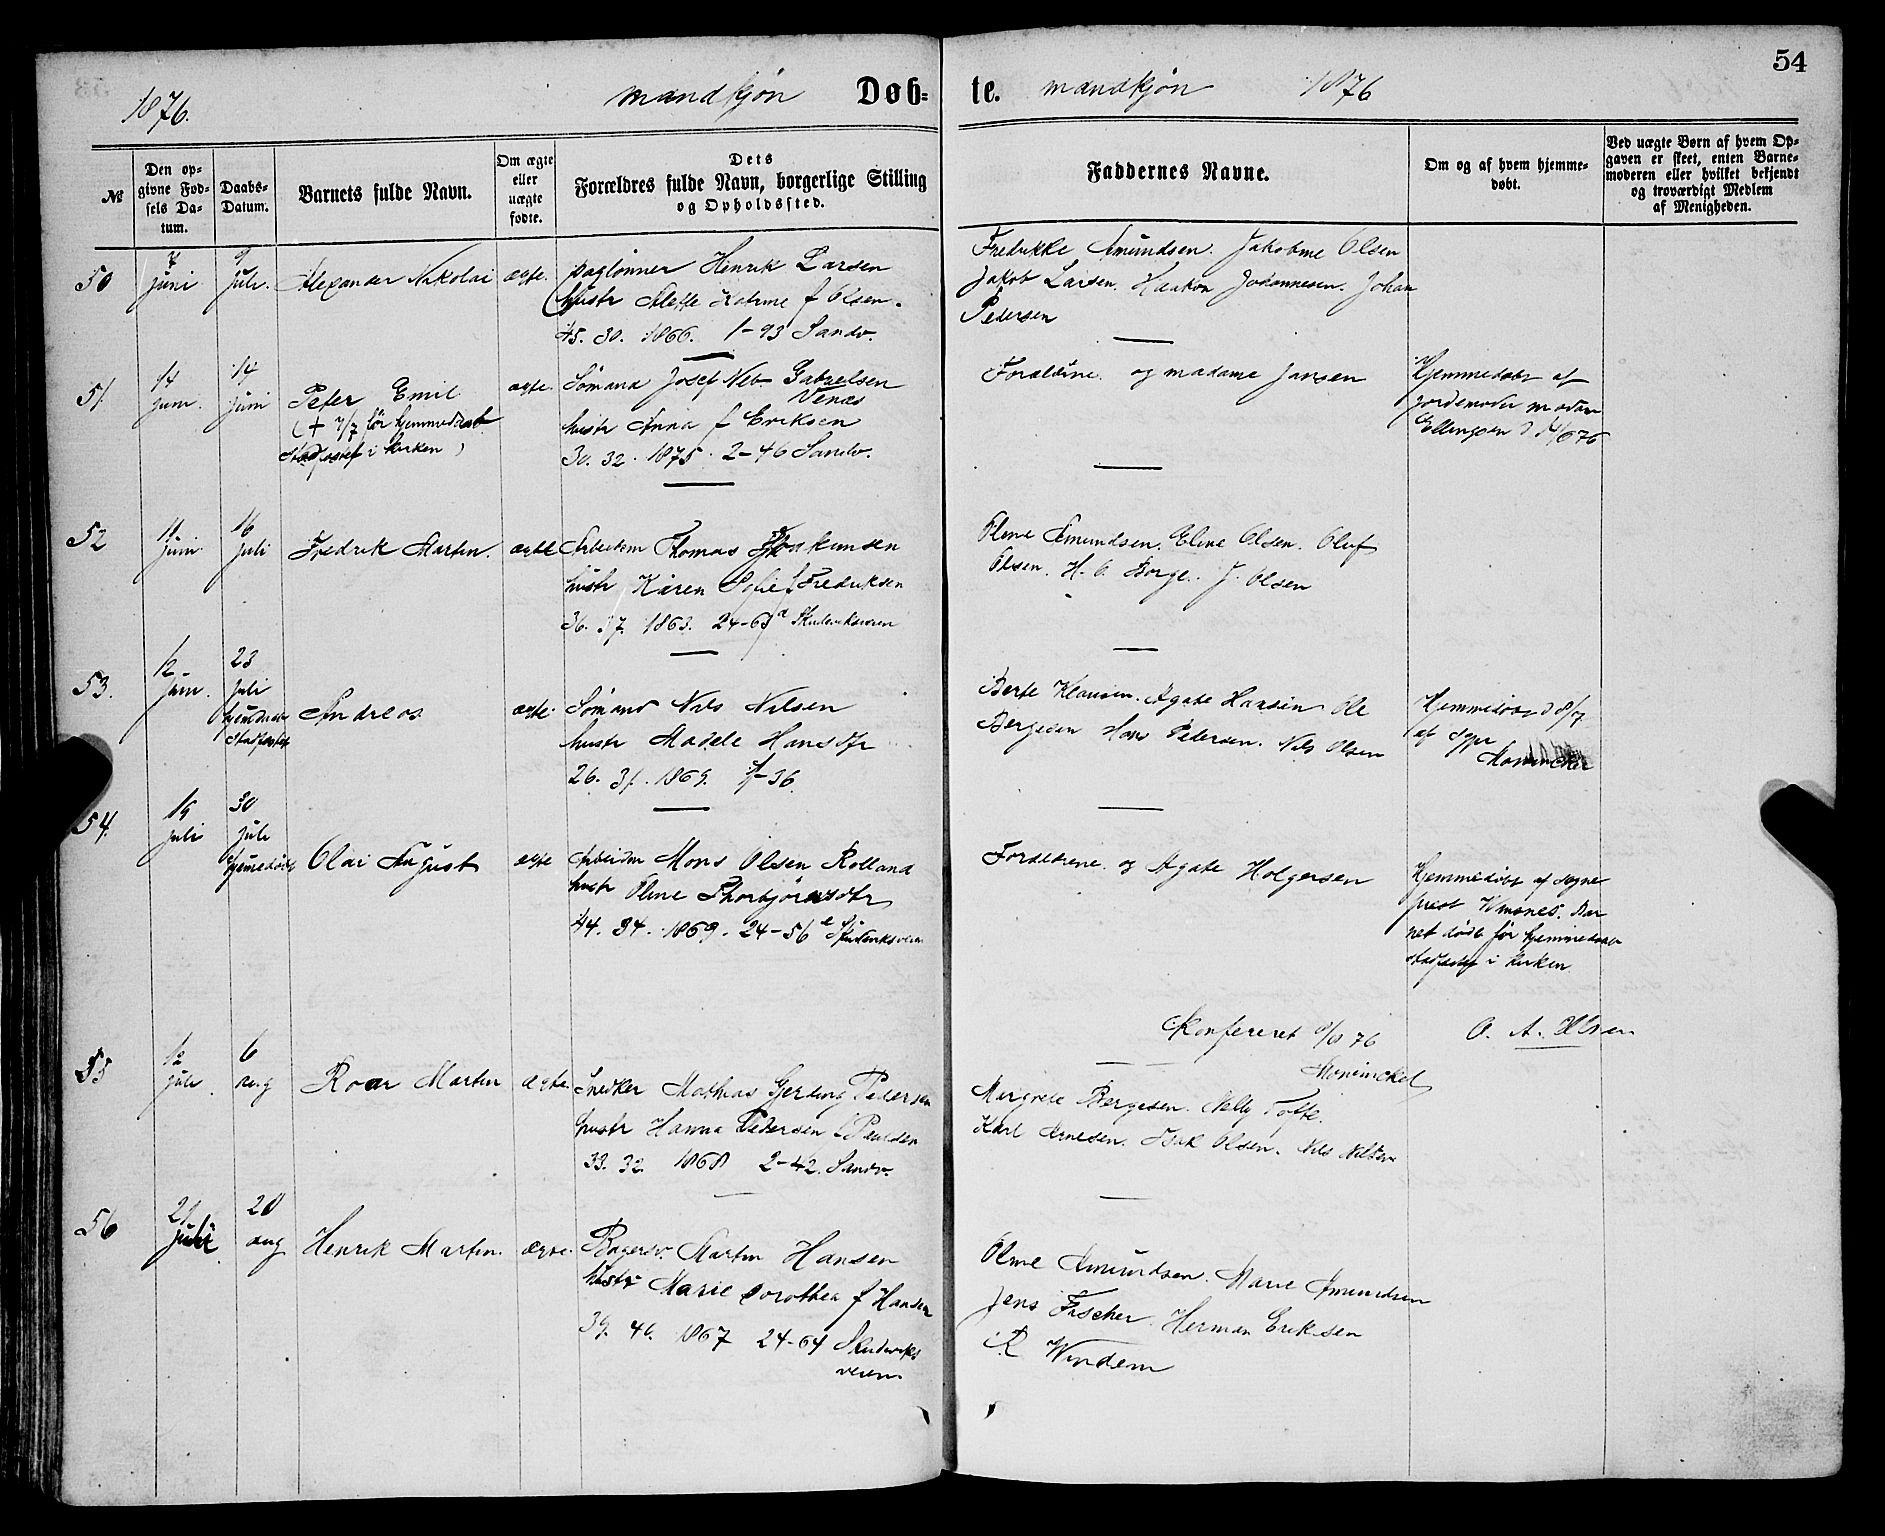 54
1876. mandkjøn Døb=
te. mandkjøn 1876
№
Den op-
givne Fød-
sels Da-
tum.
Daabs-
Datum.
Barnets fulde Navn.
Om ægte
eller
uægte
fødte.
Dets
Forældres fulde Navn, borgerlige Stilling
og Opholdssted.
Faddernes Navne.
Om og af hvem hjemme-
døbt.
Ved uægte Børn af hvem Op-
gaven er skeet, enten Barne-
moderen eller hvilket bekjendt
og troværdigt Medlem
af Menigheden.
50
7
Juni
9
Juli.
Alexander Nikolai
ægte.
Daglønner Henrik Larsen
hustr Katrine f Olsen.
45. 30. 1866. 1-93 Sandv.
Fredrikke Amundsen. Jakobine Olsen
Jakob Larsen. Haakon Johannesen. Johan
Pedersen
51.
14
Juni.
14
Juni
Peter Emil
(+ 7/7 før hjemmedaab
stadfestet i kirken)
ægte.
Sømand Josef Neb Gabrielsen
Venæs
hustr Anna f Eriksen
30. 32. 1875. 2-46 Sandv.
Forældrene. og madame Jansen
Hjemmedøbt af
jordemoder madam
Ellingsen d 14/6 76
52
11
Juni
16
Juli
Fredrik Martin.
ægte
Arbeidsm Thomas Joakimsen
hustr Karen Sofie f Fredriksen
36. 37. 1863. 24-63 a Skudeviksveien
Oline Amundsen. Eline Olsen. Oluf
Olsen. H. O. Borge. J. Olsen
53.
12
Juni.
23
Juli
hjemdaab
stadfestet
Andreas
ægte.
Sømand Nils Nilsen
hustr Madele Hansdtr
26. 31. 1869. 1-36.
Berte Klausen. Agate Hansen Ole
Bergesen Hans Pedersen. Nils Olsen
Hjemmedøbt d 8/7
af Sgpr
Monnickel
54.
19
Juli
30
Juli
hjemmedøbt
Olai August
ægte
Arbeidsm Mons Olsen Rolland
hustr Oline Thorbjørnsdtr
44. 34. 1869. 24-56 e Skudeviksveien
Forældrene og Agate Holgersen
Hjemmedøbt af Sogne
prest Wisnes. Bar
net døde før hjemmedaab
stadfestet i kirken
Konfereret 9/8 76
Monnickel
O. A. Olsen
55
12
Juli
6
aug
Roar Martin
ægte.
Snedker Mathias Gjerding Pedersen
hustr Hanna Pedersen f Paulsen
33. 32. 1868 2-42. Sandv.
Margrete Bergesen. Nelly Tofte.
Karl Arnesen. Isak Olsen. Nils Nilsen
56
21
Juli
20
aug
Henrik Martin.
ægte.
Bagersv. Martin Hansen
hustr Marie Dorothea f Hansen
39. 40. 1867 24-64 Skudeviks
veien.
Oline Amundsen. Marie Amundsen
Jens Fischer. Herman Eriksen
R Windem